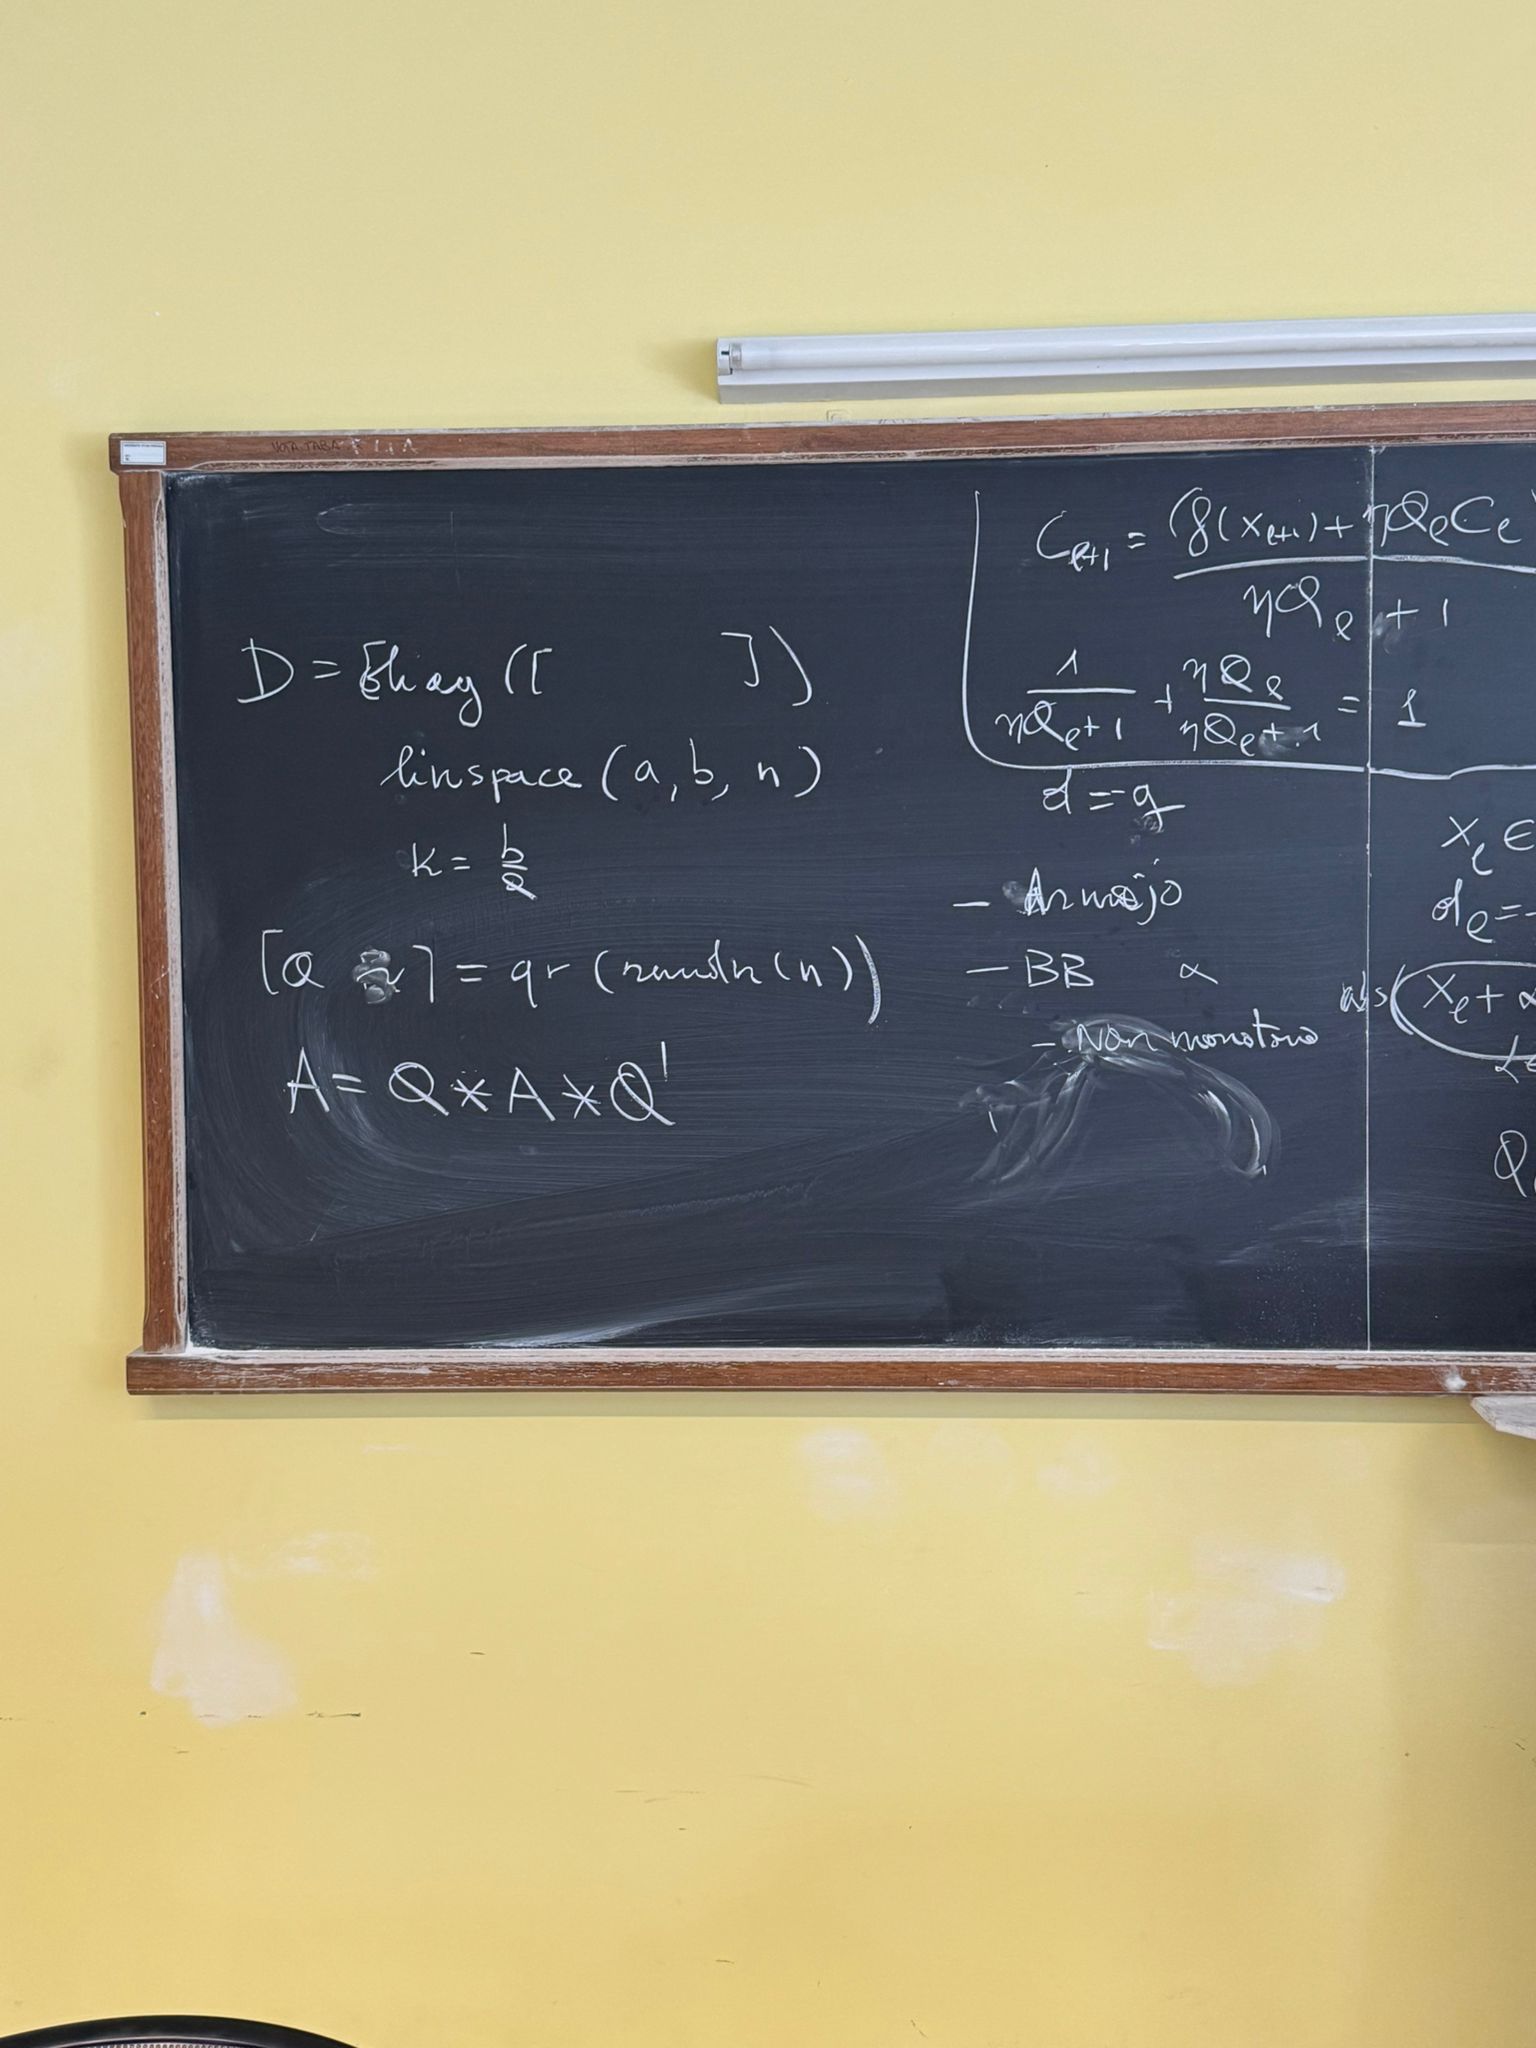 D = diag([ ])
linspace(a, b, n)
K = b/a
[Q ] = qr(randn(n))
A = Q * A * Q'
C_{ℓ+1} = (f(x_{ℓ+1}) + ηQ_ℓ C_ℓ
ηQ_ℓ + 1
1/(ηQ_ℓ+1) + ηQ_ℓ/(ηQ_ℓ+1) = 1
d = -g
- Armijo
- BB α
- Non monotono
x_ℓ ∈
d_ℓ = -
abs(x_ℓ + α
Q